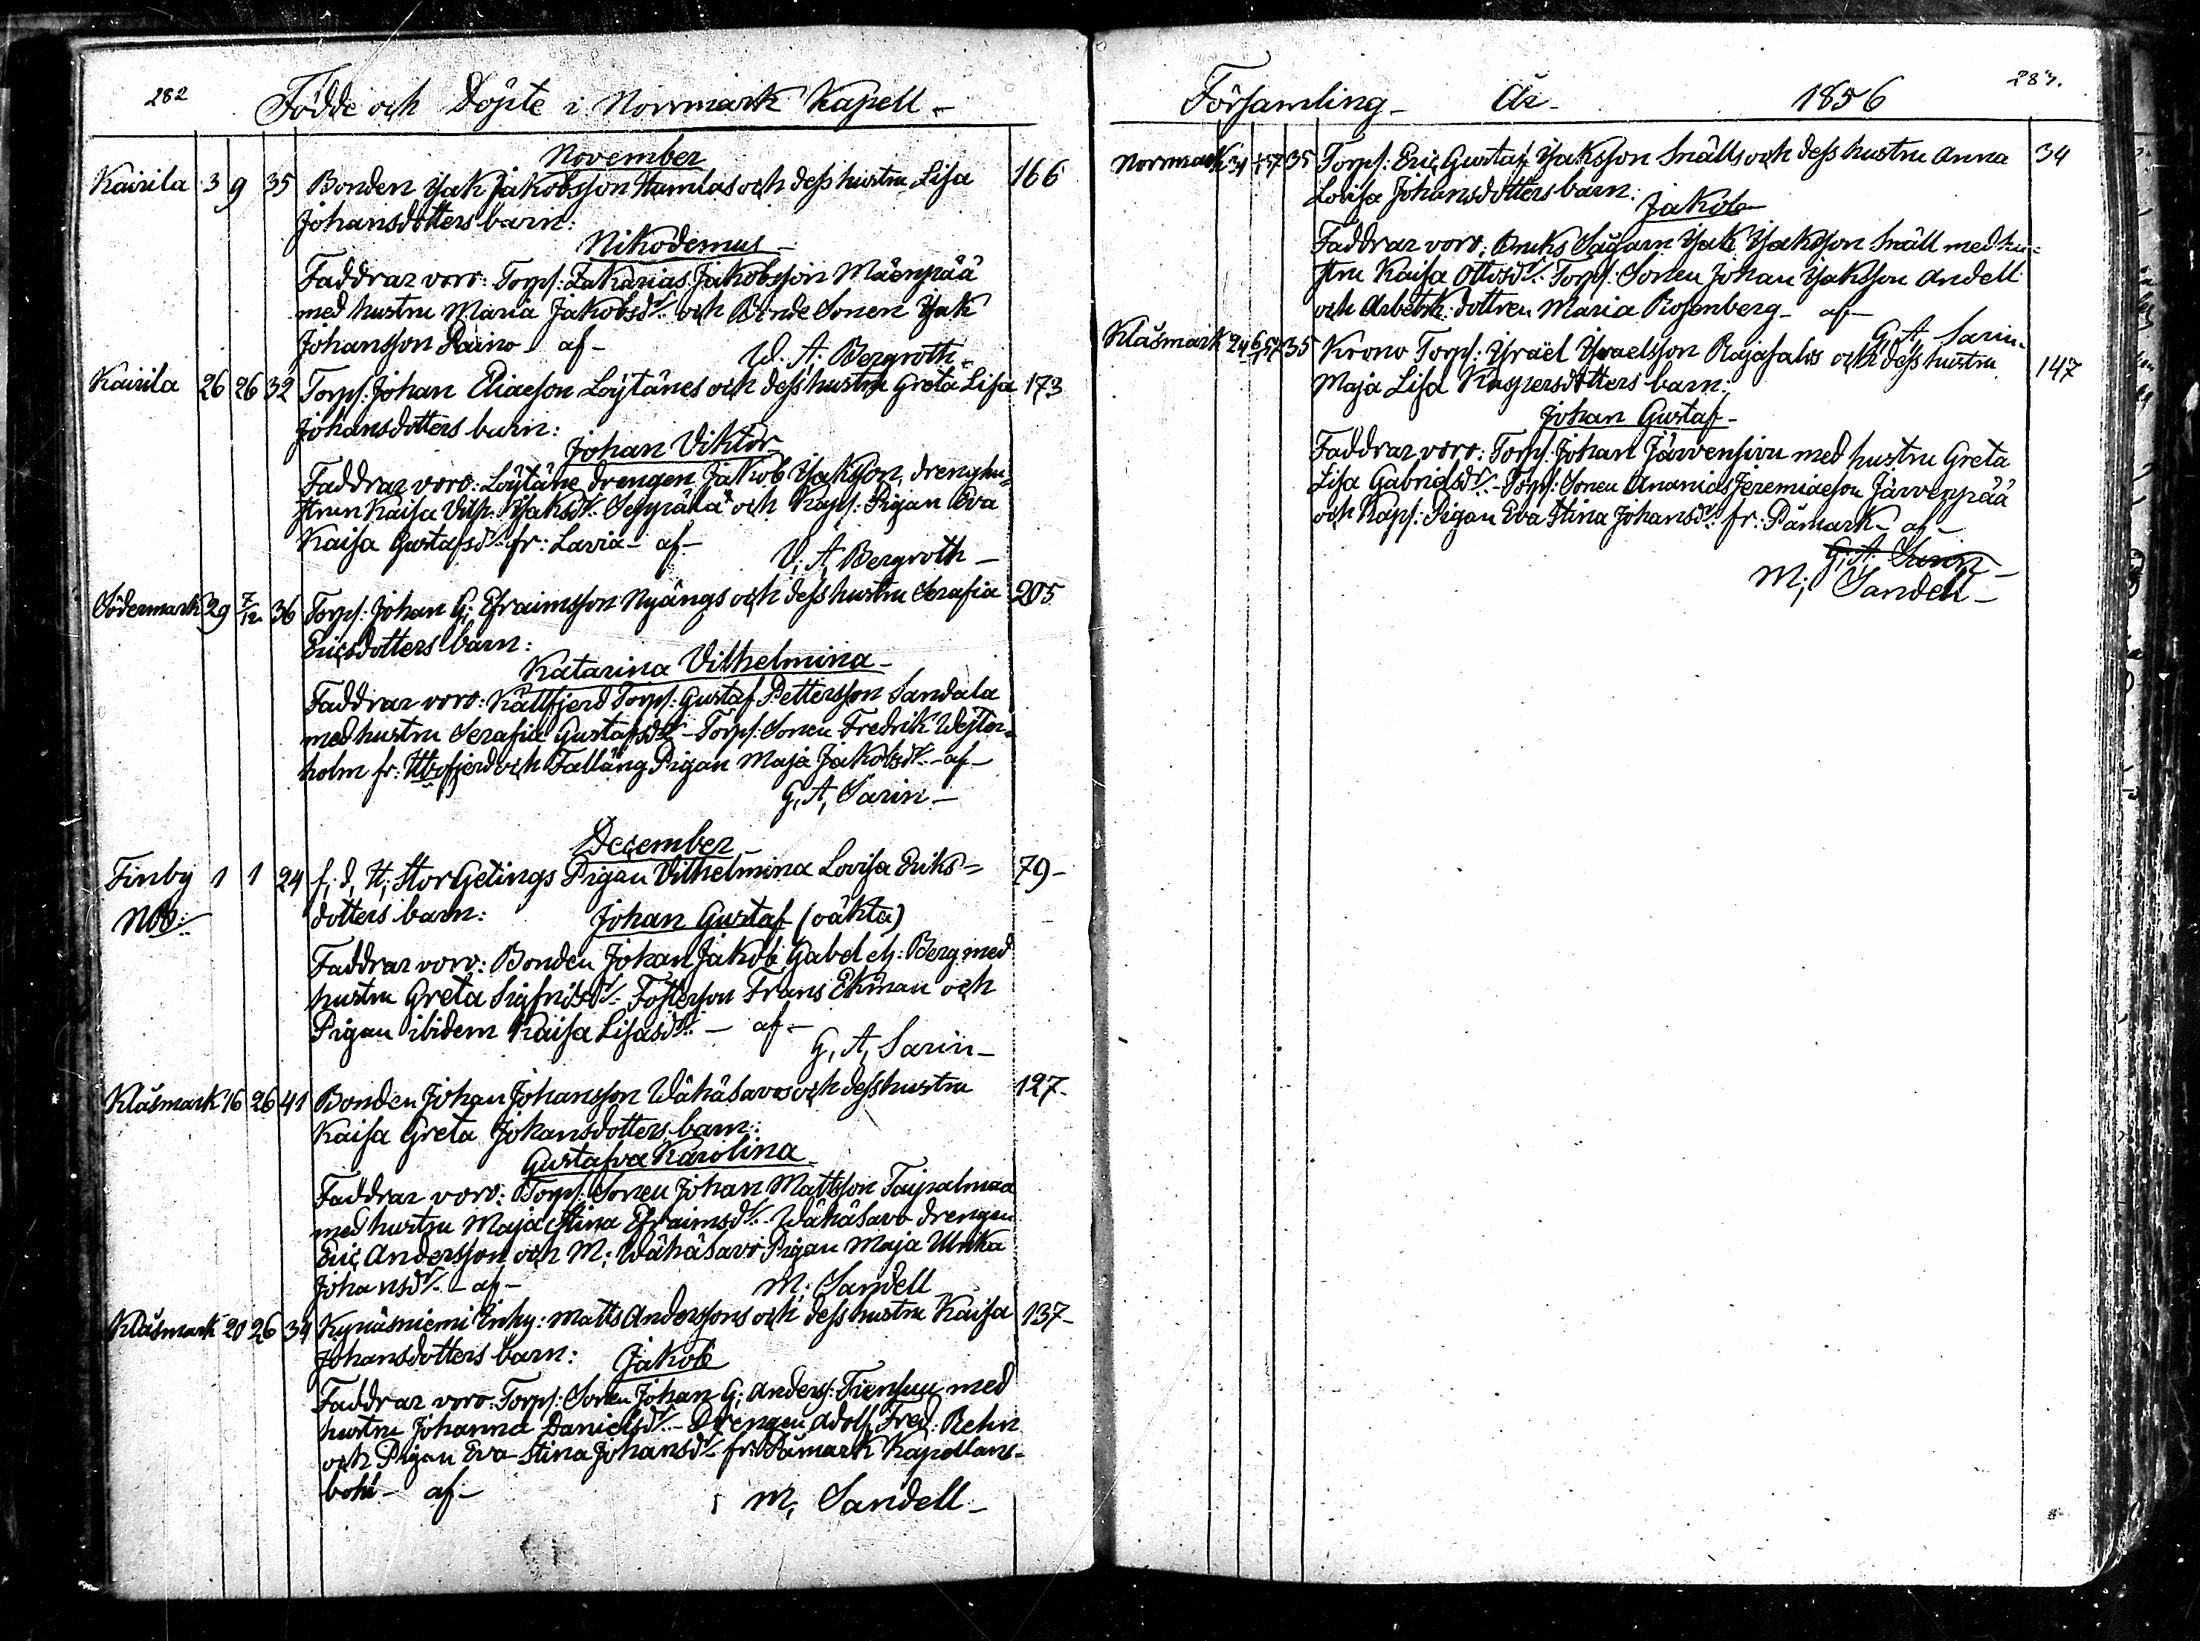 282
Födde och Döpte i Norrmark Kapell -
November
Kairila 3 9 35 Bonden Isak Jakobsson Hamlas och dess hustru Lisa 166
Johansdotters barn:
Nikodemus -
Faddrar voro: Torp: Zakarias Jakobsson Mäenpää
med hustru Maria Jakobsdr. och Bonde Sonen Isak
Johansson Paino - af -
W. A. Bergroth -
Kairila 26 26 32 Torp: Johan Eliaeson Löytänes och dess hustru Greta Lisa 173
Johansdotters barn:
Johan Viktor
Faddrar voro: Löytäne drengen Jakob Isaksson, drenghu=
strun Kaisa Vilh: Isaksdr. Seppälä och Kapl: Pigan Eva
Kaisa Gustafsdr. fr: Lavia - af -
V. A. Bergroth -
Södermark 29 7/12 36 Torp: Johan G: Efraimsson Nyängs och dess hustru Serafia 205
Ericsdotters barn:
Katarina Vilhelmina -
Faddrar voro: Källfjerd Torp: Gustaf Pettersson Sandala
med hustru Serafia Gustafsdr. - Torp: Sonen Fredrik Wester=
holm fr: fjerd och Falläng Pigan Maja Jakobsdr. - af -
G. A. Sarin -
December -
Finby 1 1 24 f. d. H: StorGetings Pigan Vilhelmina Lovisa Eriks= 79 -
NB: dotters barn: Johan Gustaf (oäkta)
Faddrar voro: Bonden Johan Jakob Gabel el: Berg med
hustru Greta Sigfridsdr. - Fosterson Frans Ekman och
Pigan ibidem Kaisa Lisasdr. - af -
G. A. Sarin -
Klåsmark 16 26 41 Bonden Johan Johansson Wähäsavos och dess hustru 127 -
Kaisa Greta Johansdotters barn:
Gustafva Karolina -
Faddrar voro: Torp: Sonen Johan Mattsson Taipalmaa
med hustru Maja Stina Efraimsdr. - Wähäsavo drengen
Eric Andersson och M: Wähäsavo Pigan Maja Ulrika
Johansdr. - af - M: Sandell
Klåsmark 20 26 34 Kynäsniemi Inhy: Matts Anderssons och dess hustru Kaisa 137 -
Johansdotters barn: Jakob
Faddrar voro: Torp: Sonen Johan G: Anders: Fiensuu med
hustru Johanna Danielsdr. - Drengen Adolf Fred: Rehn
och Pigan Eva Stina Johansdr. fr: Påmark Kapellans-
bohl - af -
M: Sandell -
283.
Församling - År - 1856
Norrmark 31 57 35 Torp: Eric Gustaf Isaksson Snälls och dess hustru Anna 34
Lovisa Johansdotters barn:
Jakob
Faddrar voro: Bruks Sågarn Isak Isaksson Snäll med hu=
stru Kaisa Ottosdr. - Torp: Sonen Johan Isaksson Andell
och Arbetsk: dottren Maria Rosenberg - af -
G. A. Sarin -
Klåsmark 24 57 35 Krono Torp: Israel Israelsson Rajasalos och dess hustru 147
Maja Lisa Kaspersdotters barn:
Johan Gustaf -
Faddrar voro: Torp: Johan Järvensivu med hustru Greta
Lisa Gabrielsdr. - Torp: Sonen Ananias Jeremiaeson Järvenpää
och Kapl: Pigan Eva Stina Johansdr. fr: Påmark - af -
G. A. Sarin -
M: Sandell -